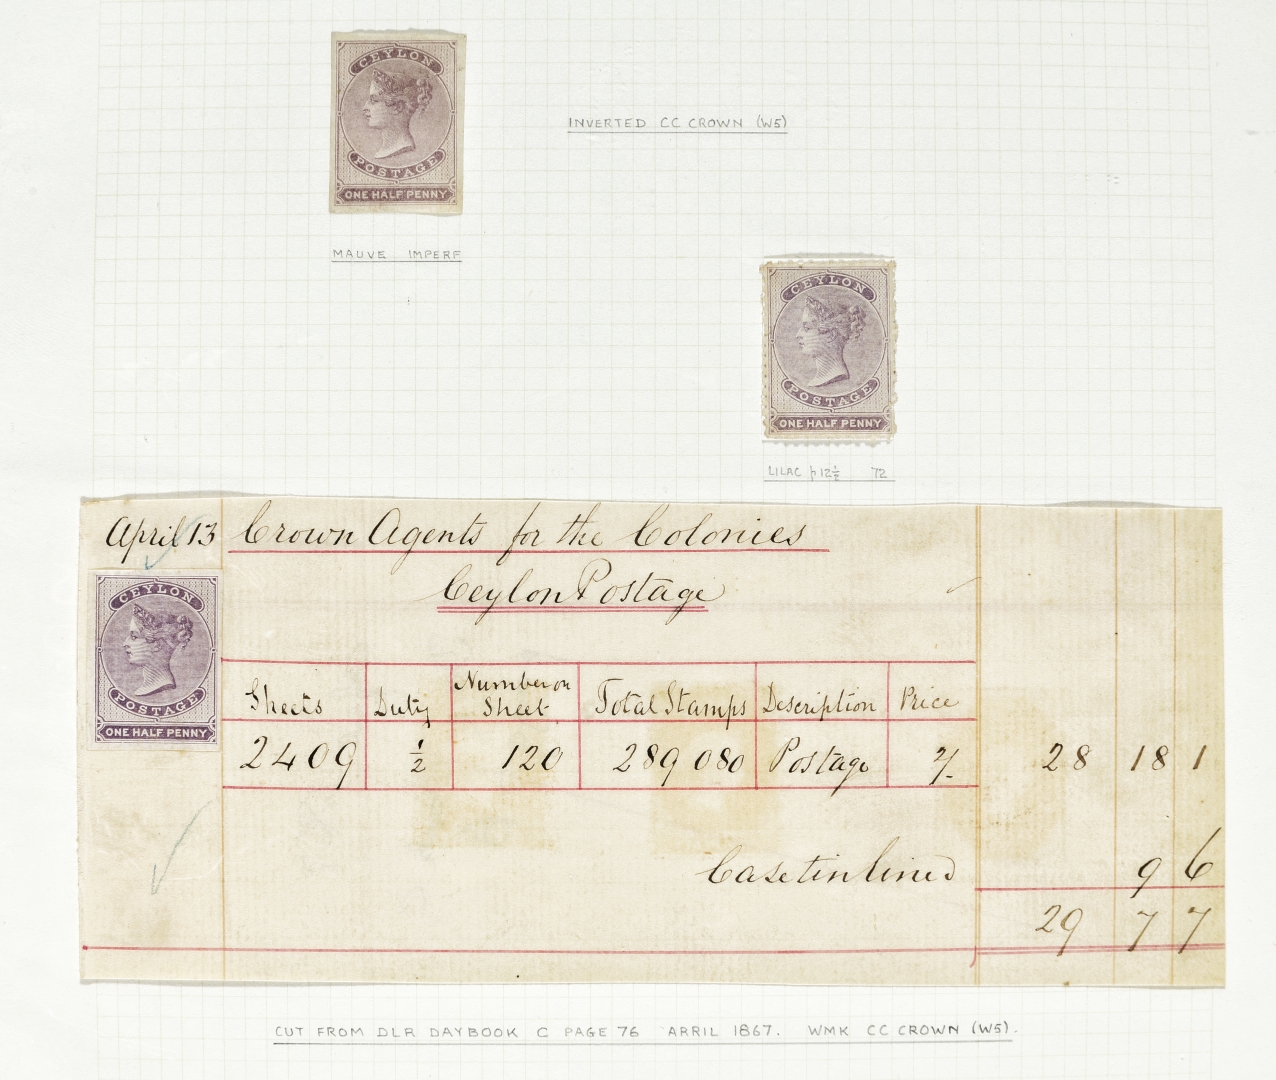 CEYLON
POSTAGE
ONE HALF PENNY
INVERTED CC CROWN (W5)
MAUVE IMPERF
CEYLON
POSTAGE
ONE HALF PENNY
LILAC p12½ 72
April 13 Crown Agents for the Colonies
Ceylon Postage
CEYLON
POSTAGE
ONE HALF PENNY
Sheets Duty Number on Sheet Total Stamps Description Price
2409 ½ 120 289080 Postage 2/- 28 18 1
Case tin lined 9 6
29 7 7
CUT FROM DLR DAYBOOK C PAGE 76 APRIL 1867. WMK CC CROWN (W5).